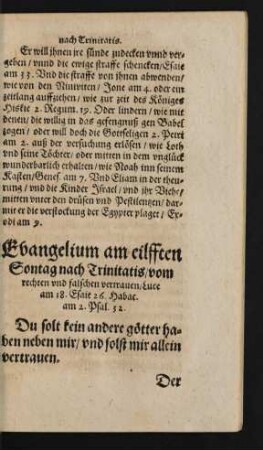 nach Trinitatis.
Er will jhnen ire sünde zudecken vnnd ver-
geben / vnnd die ewige straffe schencken / Esaie
am 33. Vnd die straffe von ihnen abwenden /
wie von den Niniviten / Jone am 4. oder ein
zeitlang auffziehen / wie zur zeit des Königes
Hiskie 2. Regum. 19. Oder lindern / wie mit
denen / die willig in das gefengnuß gen Babel
zogen / oder will doch die Gottseligen 2. Petri
am 2. auß der versuchung erlösen / wie Loth
vnd seine Töchter / oder mitten in dem vnglück
wunderbarlich erhalten / wie Noah inn seinem
Kasten / Genes. am 7. Vnd Eliam in der theu-
rung / vnd die Kinder Israel / vnd ihr Viehe /
mitten vnter den drüsen vnd Pestilentzen / dar-
mit er die verstockung der Egypter plaget / Ex-
odi am 9.
Evangelium am eilfften
Sontag nach Trinitatis / vom
rechten vnd falschen vertrauen / Luce
am 18. Esaie 26. Habac.
am 2. Psal. 52.
Du solt kein andere götter ha-
ben neben mir / vnd solst mir allein
vertrauen.
Der